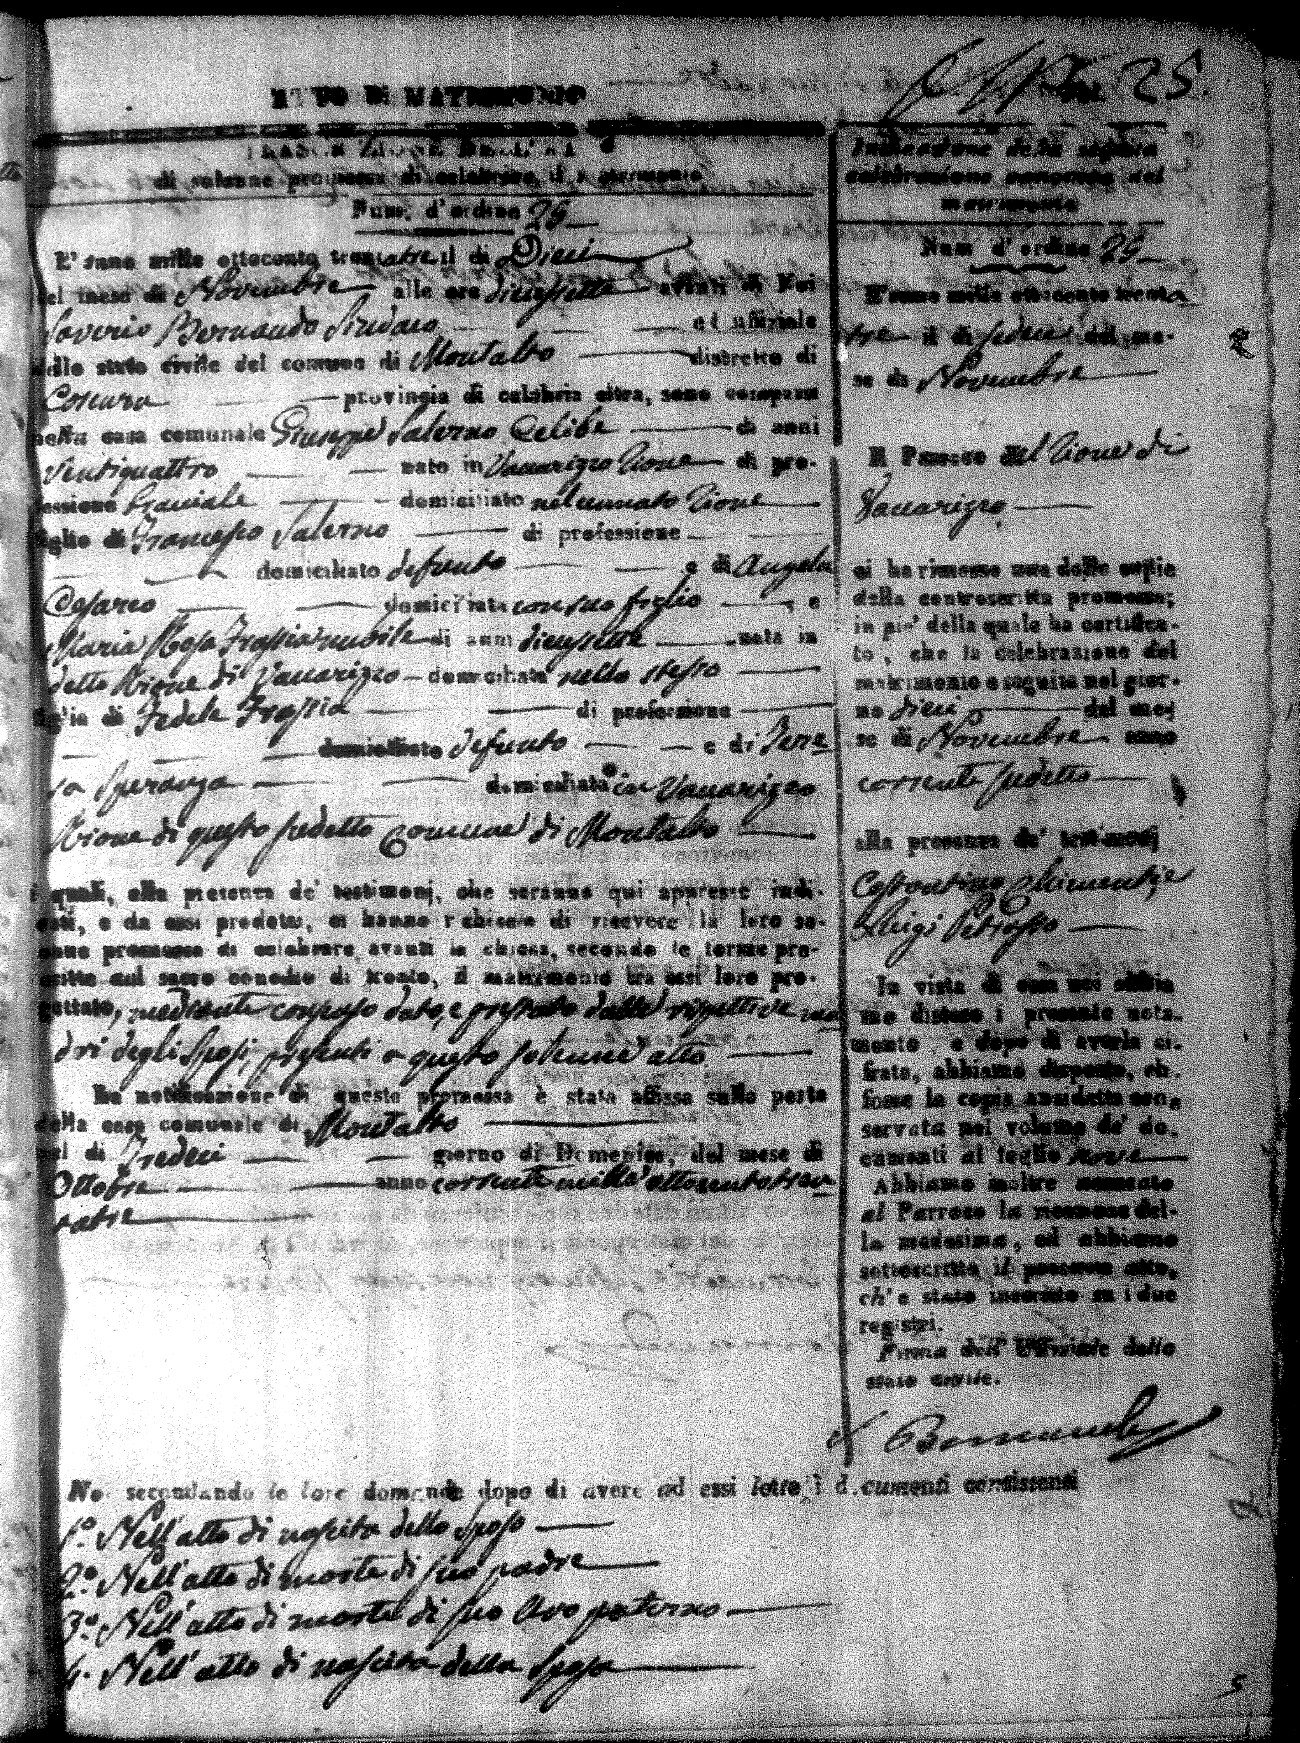 25.
ATTO DI MATRIMONIO
TRASCRIZIONE DELL'ATTO
di solenne promessa di celebrare il matrimonio
Num. d'ordine 25
L'anno mille ottocento trentatre il di Dieci
del mese di Novembre alle ore diciassette avanti di Noi
Saverio Bernaudo Sindaco ed uffiziale
dello stato civile del comune di Montalto distretto di
Cosenza provincia di calabria citra, sono comparsi
nella casa comunale Giuseppe Salerno Celibe di anni
Ventiquattro nato in Vaccarizzo Rione di pro-
fessione Bracciale domiciliato nel cennato Rione
figlio di Francesco Salerno di professione
domiciliato defunto e di Angela
Cesareo domiciliata con suo figlio e
Maria Rosa Frassia nubile di anni diciassette nata in
detto Rione di Vaccarizzo domiciliata nello stesso
figlia di Fedele Frassia di professione
domiciliato defunto e di Tere
sa Speranza domiciliata in Vaccarizzo
Rione di questo sudetto Comune di Montalto
i quali, alla presenza de' testimonj, che saranno qui appresso indi-
cati, e da essi predetti, ci hanno richiesto di ricevere la loro so-
lenne promessa di celebrare avanti la chiesa, secondo le forme pre-
scritte dal sacro concilio di trento, il matrimonio tra essi loro pro-
gettato, mediante consenso dato, e prestato dalle rispettive ma
dri degli Sposi, presenti a questo solenne atto
La notificazione di questa promessa è stata affissa sulla porta
della casa comunale di Montalto
nel di Tredeci giorno di Domenica, del mese di
Ottobre anno corrente mille ottocento tren
tatre
No secondando le loro domande dopo di avere ad essi letto i documenti consistenti
1.° Nell'atto di nascita dello Sposo
2.° Nell'atto di morte di suo padre
3.° Nell'atto di morte di suo Avo paterno
4. Nell'atto di nascita della Sposa
Indicazione della seguita
celebrazione canonica del
matrimonio
Num d'ordine 25
L'anno mille ottocento trenta
tre il di sedeci del me-
se di Novembre
Il Parroco del Rione di
Vaccarizzo
ci ha rimesso una delle copie
della controscritta promessa;
in pie' della quale ha certifica-
to, che la celebrazione del
matrimonio e seguita nel gior-
no dieci del me-
se di Novembre anno
corrente sudetto
alla presenza de' testimonj
Costantino Chimenti, e
Luigi Petrasso
In vista di essa noi abbia
mo disteso il presente nota-
mento, e dopo di averla ci-
frata, abbiamo disposto, ch
fosse la copia anzidetta con-
servata nel volume de' do-
cumenti al foglio nove
Abbiamo inoltre accusato
al Parroco la ricezione del-
la medesima, ed abbiamo
sottoscritto il presente atto,
ch' e stato inscritto su i due
registri.
Firma dell' Uffiziale dello
stato civile.